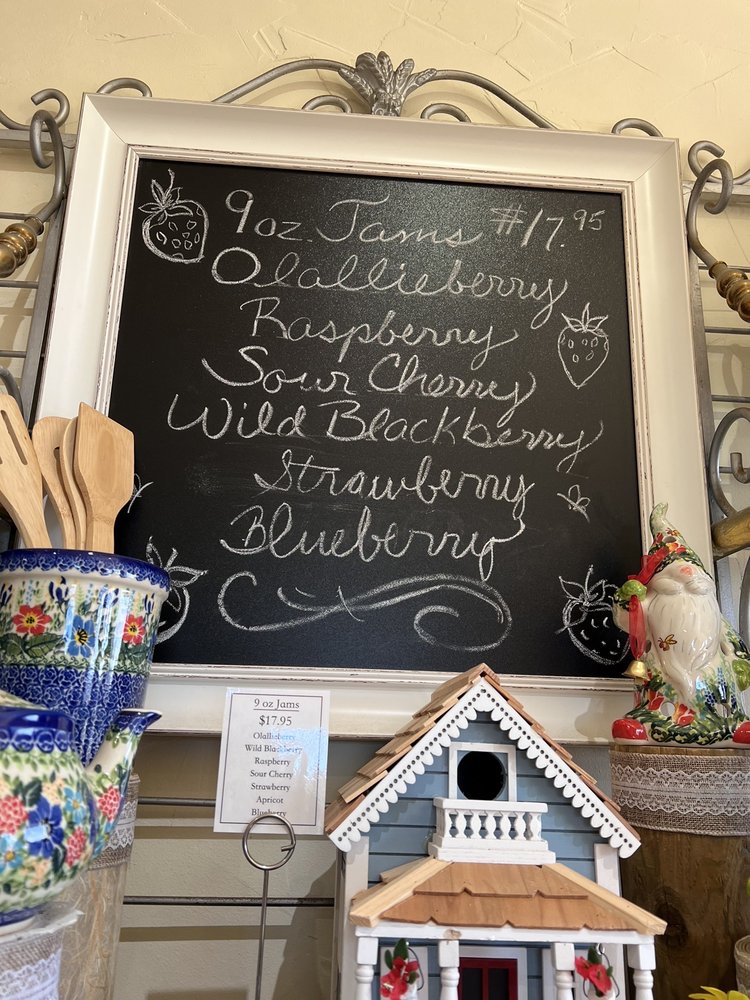 9oz. Jams #17.95
Olallieberry
Raspberry
Sour Cherry
Wild Blackberry
Strawberry
Blueberry
9 oz Jams
$17.95
Olallieberry
Wild Blackberry
Raspberry
Sour Cherry
Strawberry
Apricot
Blueberry